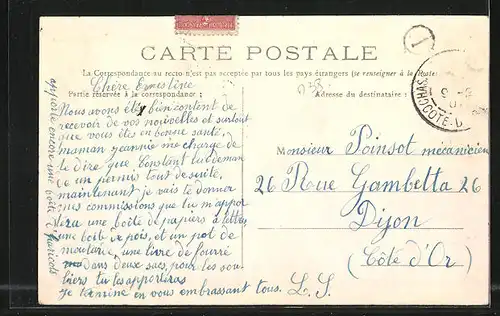 CARTE POSTALE
La Correspondance au recto n'est pas acceptée par tous les pays étrangers (se renseigner à la Poste)
Partie réservée à la correspondance:
Adresse du destinataire:
Chère Ernestine
Nous avons été bien content de
recevoir de vos nouvelles et surtout
que vous êtes en bonne santé,
maman Jeannie me charge de
te dire que Constant lui deman
de un permis tout de suite,
maintenant je vais te donner
mes commissions que tu m'appor
tera une boîte de papiers à lettres
une boîte de pois, et un pot de
moutarde, une livre de
dans deux sacs pour les sou
liers tu les apportiras
je termine en vous embrassant tous. L. J.
apporte encore une boîte d'haricots
Monsieur Poinsot mécanicien
26 Rue Gambetta 26
Dijon
(Côte d'Or)